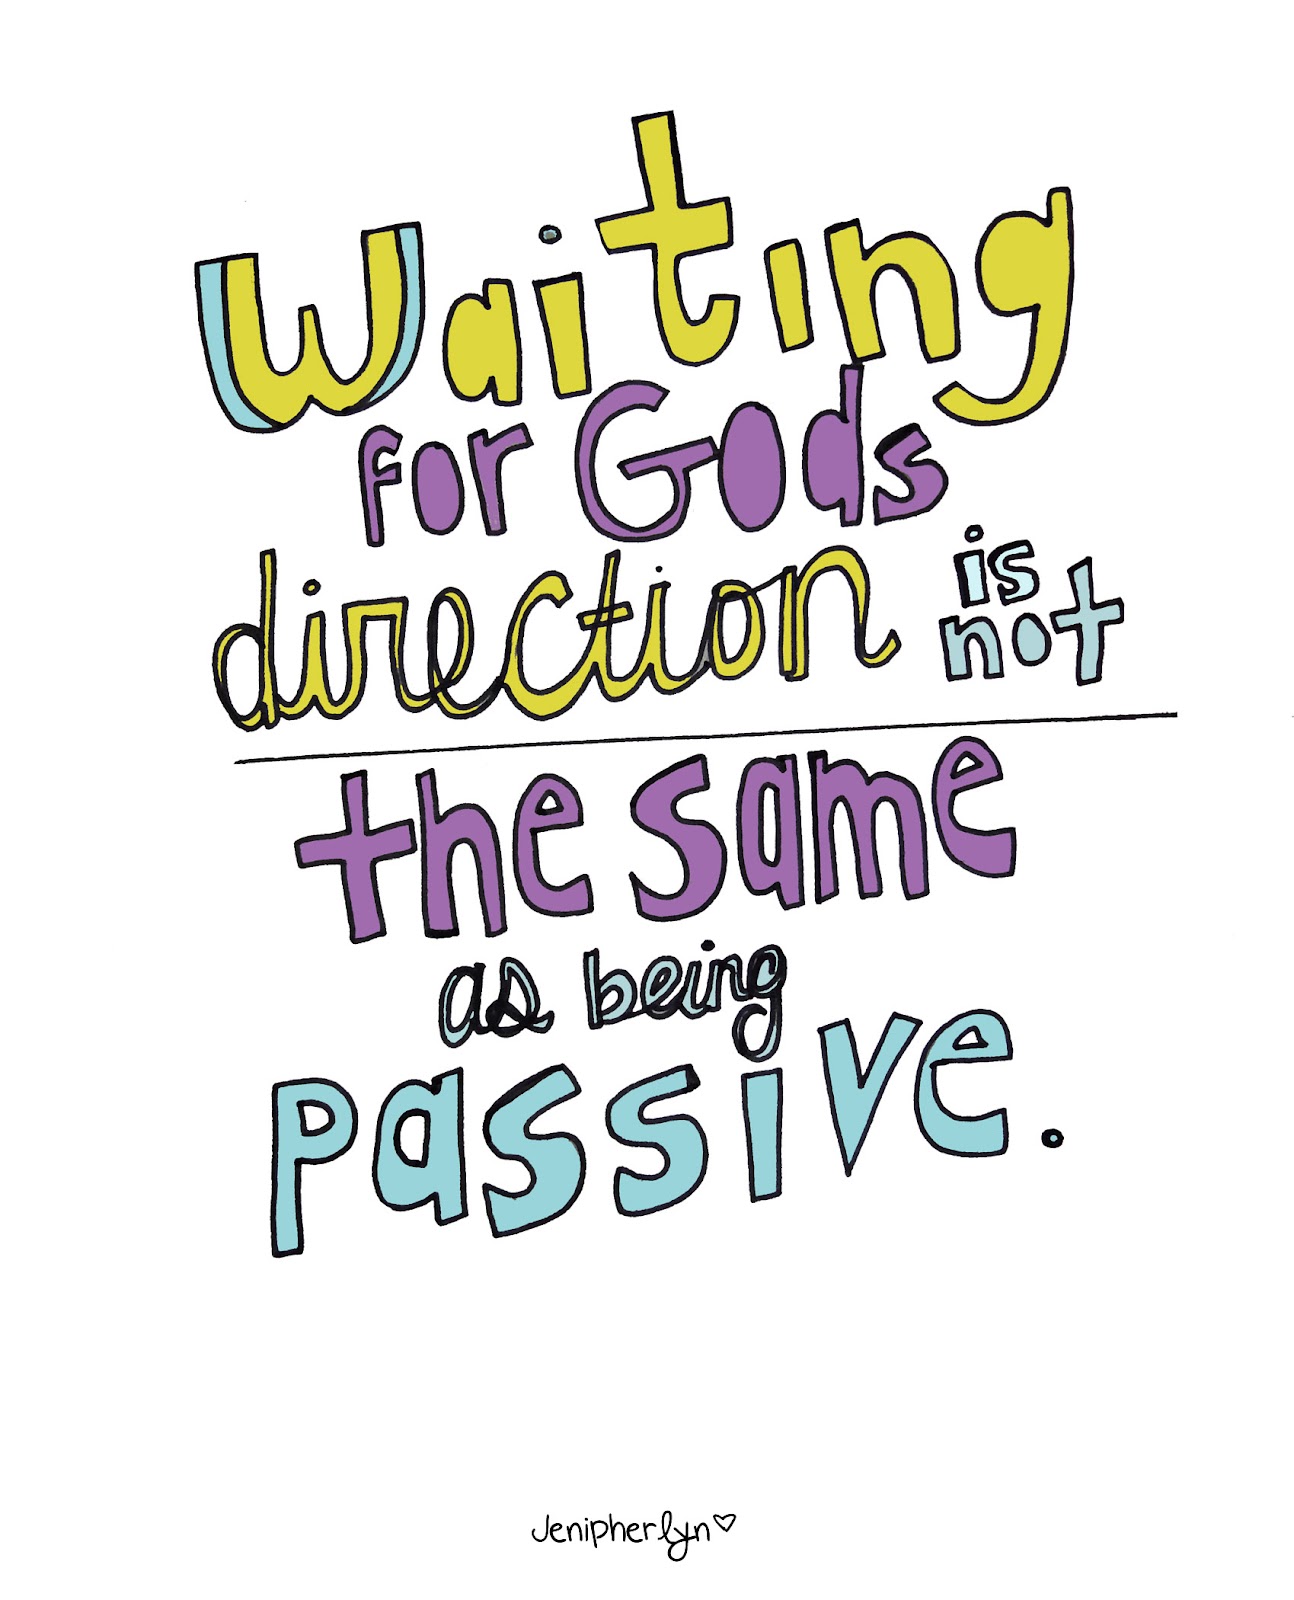 Waiting
for Gods
direction is not
the same
as being
passive.
Jenipherlyn♡